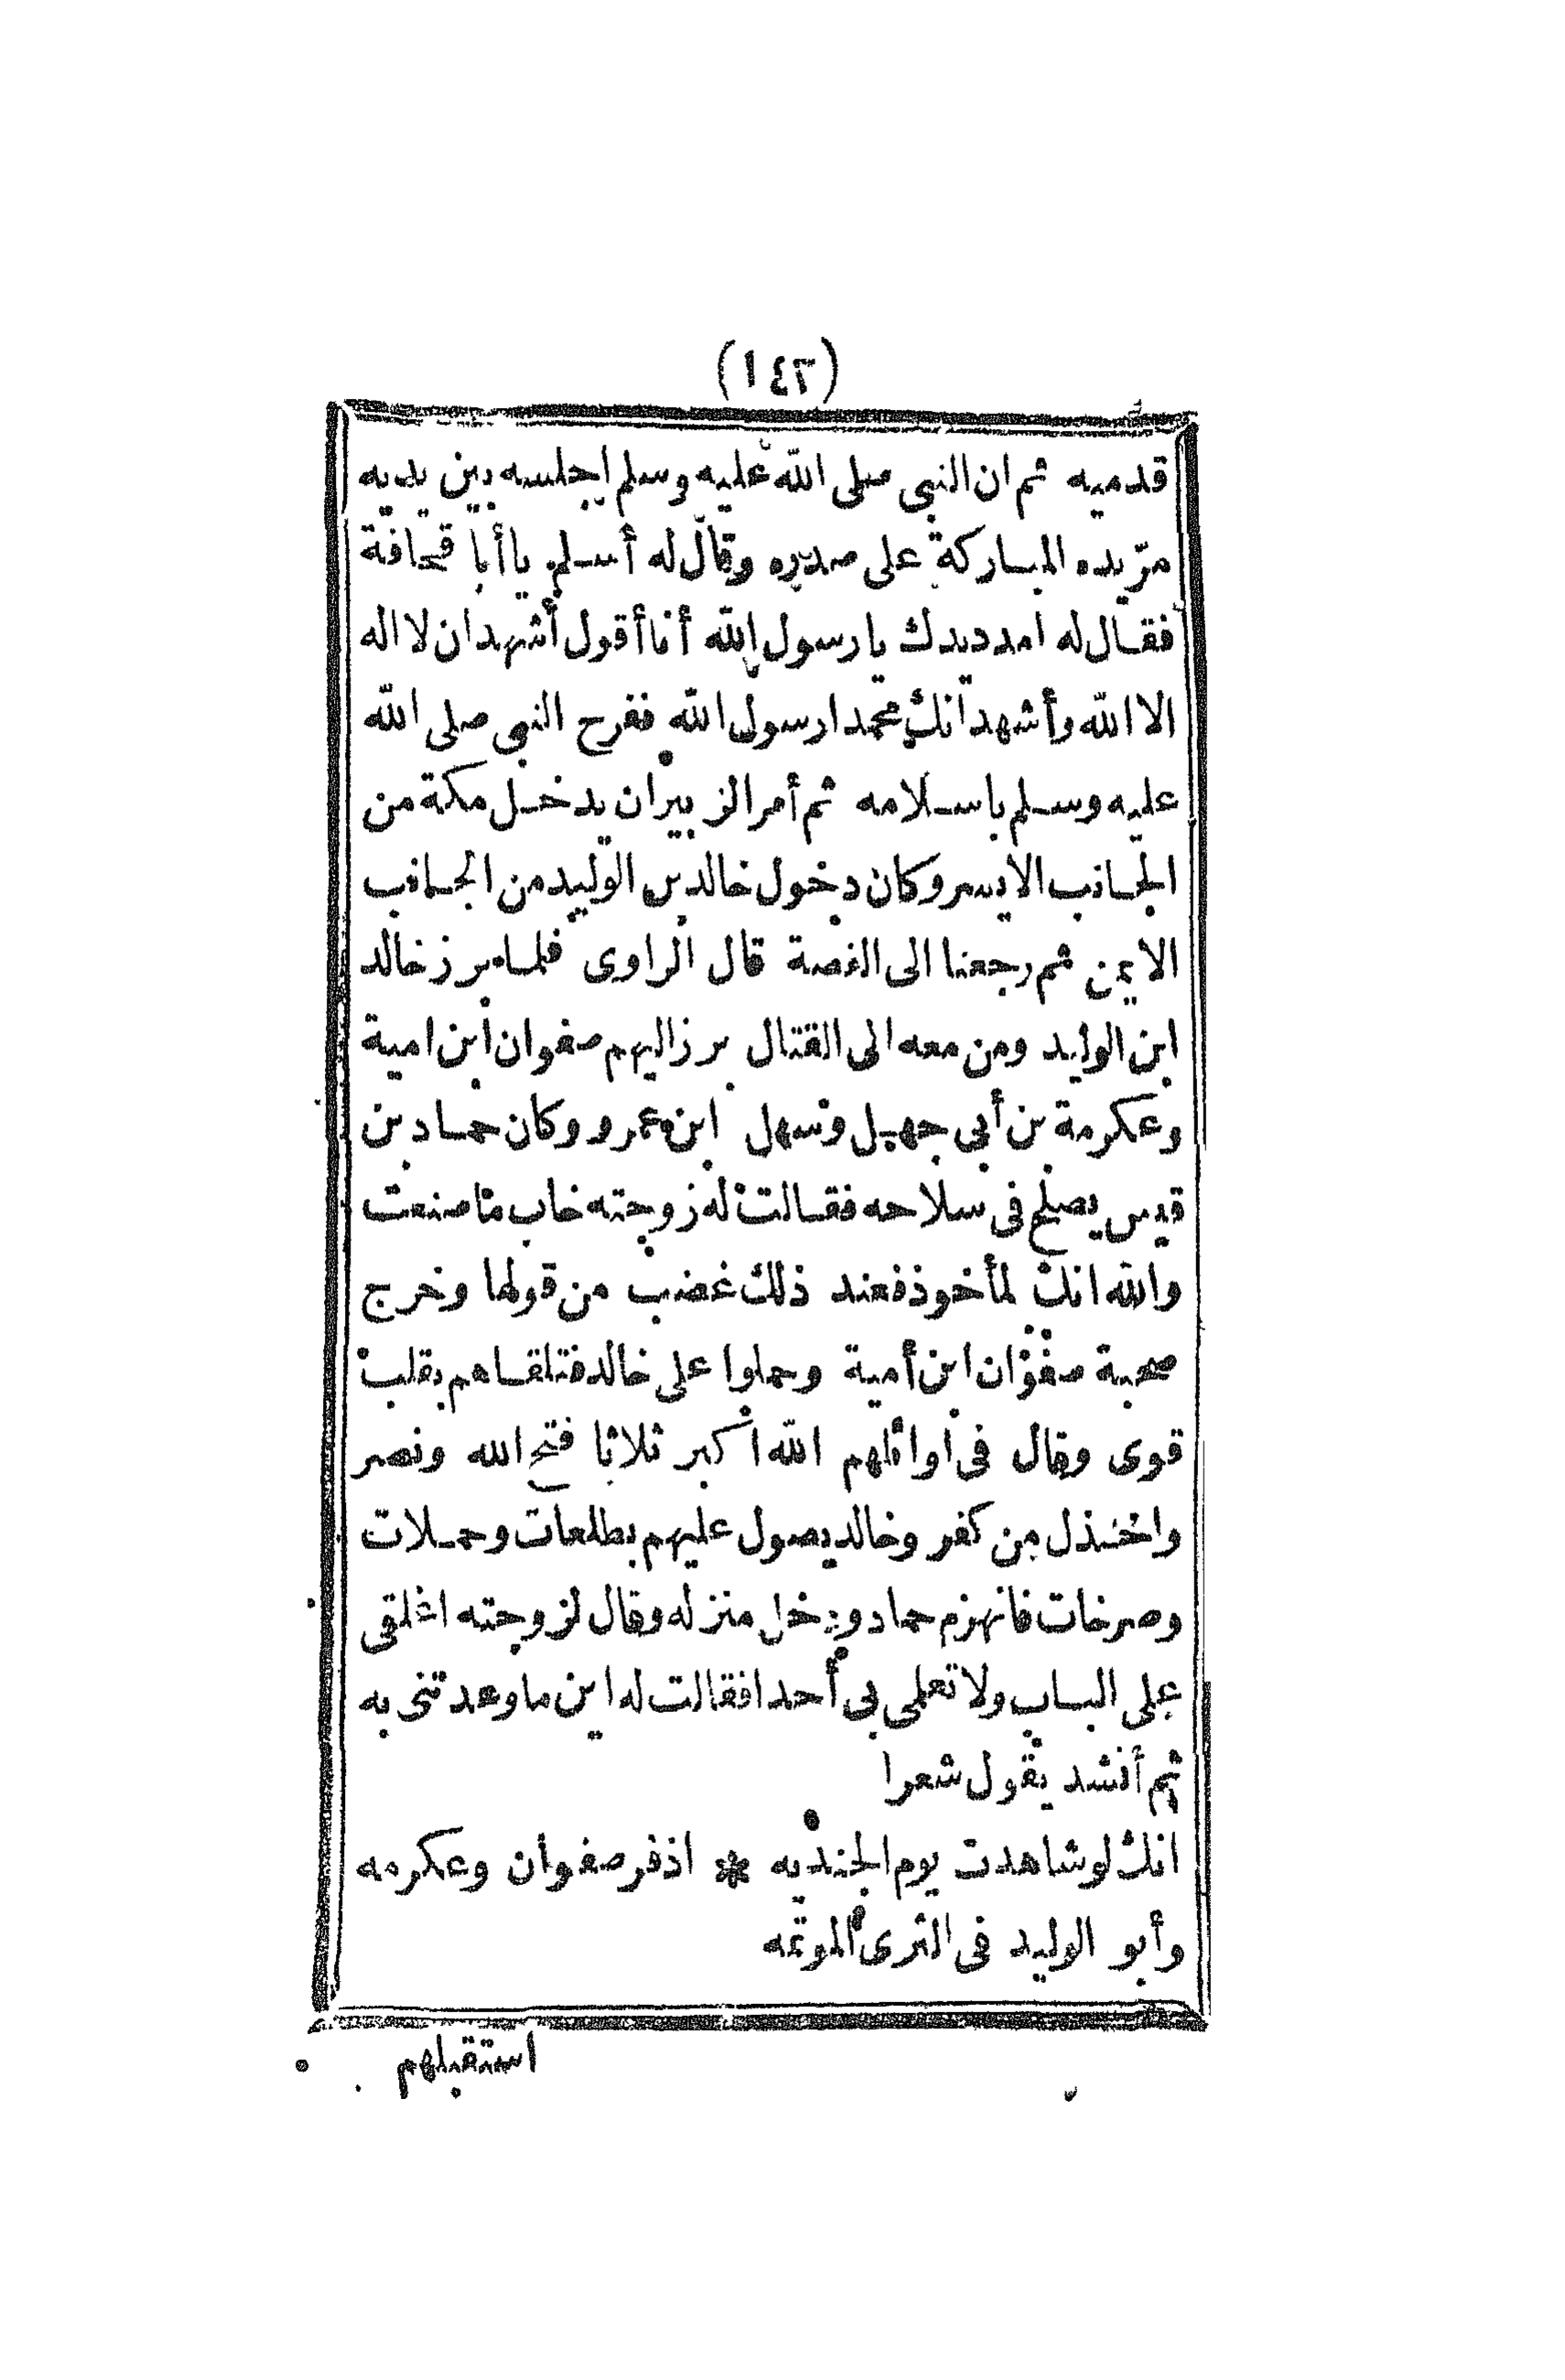 (١٤٢)
قدميه ثم ان النبى صلى الله عليه وسلم اجلسه بين يديه
مرّ يده المباركة على صدره وقال له أسلم يا أبا قحافة
فقال له امدد يدك يا رسول الله أنا أقول أشهد ان لا اله
الا الله وأشهد انك محمدا رسول الله ففرح النبى صلى الله
عليه وسلم باسلامه ثم أمر الزبير ان يدخل مكة من
الجانب الايسر وكان دخول خالد بن الوليد من الجانب
الايمن ثم رجعنا الى القصة قال الراوى فلما برز خالد
ابن الوليد ومن معه الى القتال برز اليهم صفوان ابن امية
وعكرمة بن أبى جهل وسهل ابن عمرو وكان حماد بن
قيس يصلح فى سلاحه فقالت له زوجته خاب ما صنعت
والله انك لمأخوذ فعند ذلك غضب من قولها وخرج
صحبة صفوان ابن أمية وحملوا على خالد فتلقاهم بقلب
قوى وقال فى أوائلهم الله أكبر ثلاثا فتح الله ونصر
واخذل من كفر وخالد يصول عليهم بطلعات وحملات
وصرخات فانهزم حماد ودخل منزله وقال لزوجته اغلقى
على الباب ولا تعلمى بى أحدا فقالت له اين ما وعدتنى به
ثم أنشد يقول شعرا
انك لو شاهدت يوم الجنديه * اذ فر صفوان وعكرمه
وأبو الوليد فى الثرى الموتمه
استقبلهم